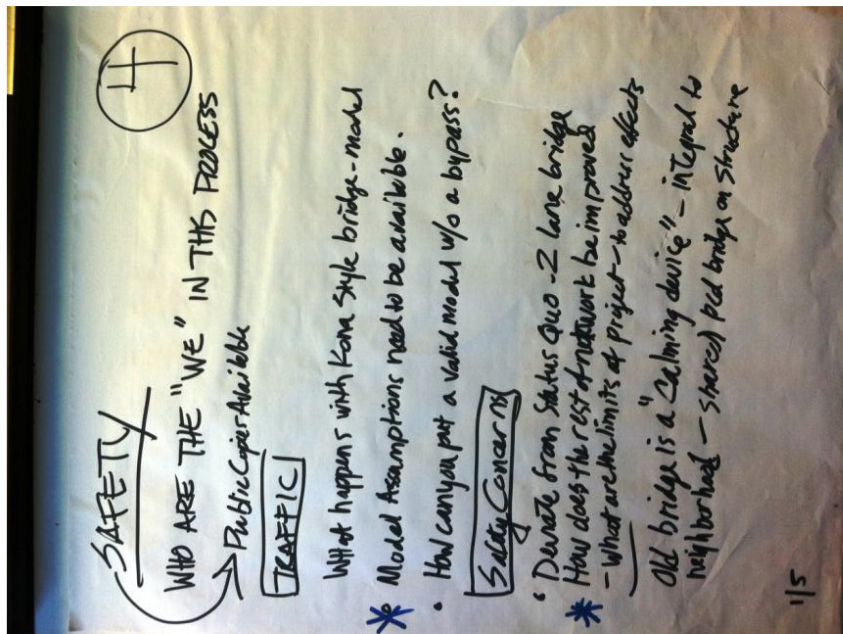 4
SAFETY
WHO ARE THE "WE" IN THIS PROCESS
Public Copies Available
TRAFFIC
What happens with Kona Style bridge-model
* Model Assumptions need to be available.
• How can you put a valid model w/o a bypass?
Safety Concerns
• Deviate from Status Quo - 2 lane bridge
* How does the rest of network be improved
- what are the limits of project - to address effects
Old bridge is a "calming device" - integral to
neighborhood - shared ped bridge on structure
1/5